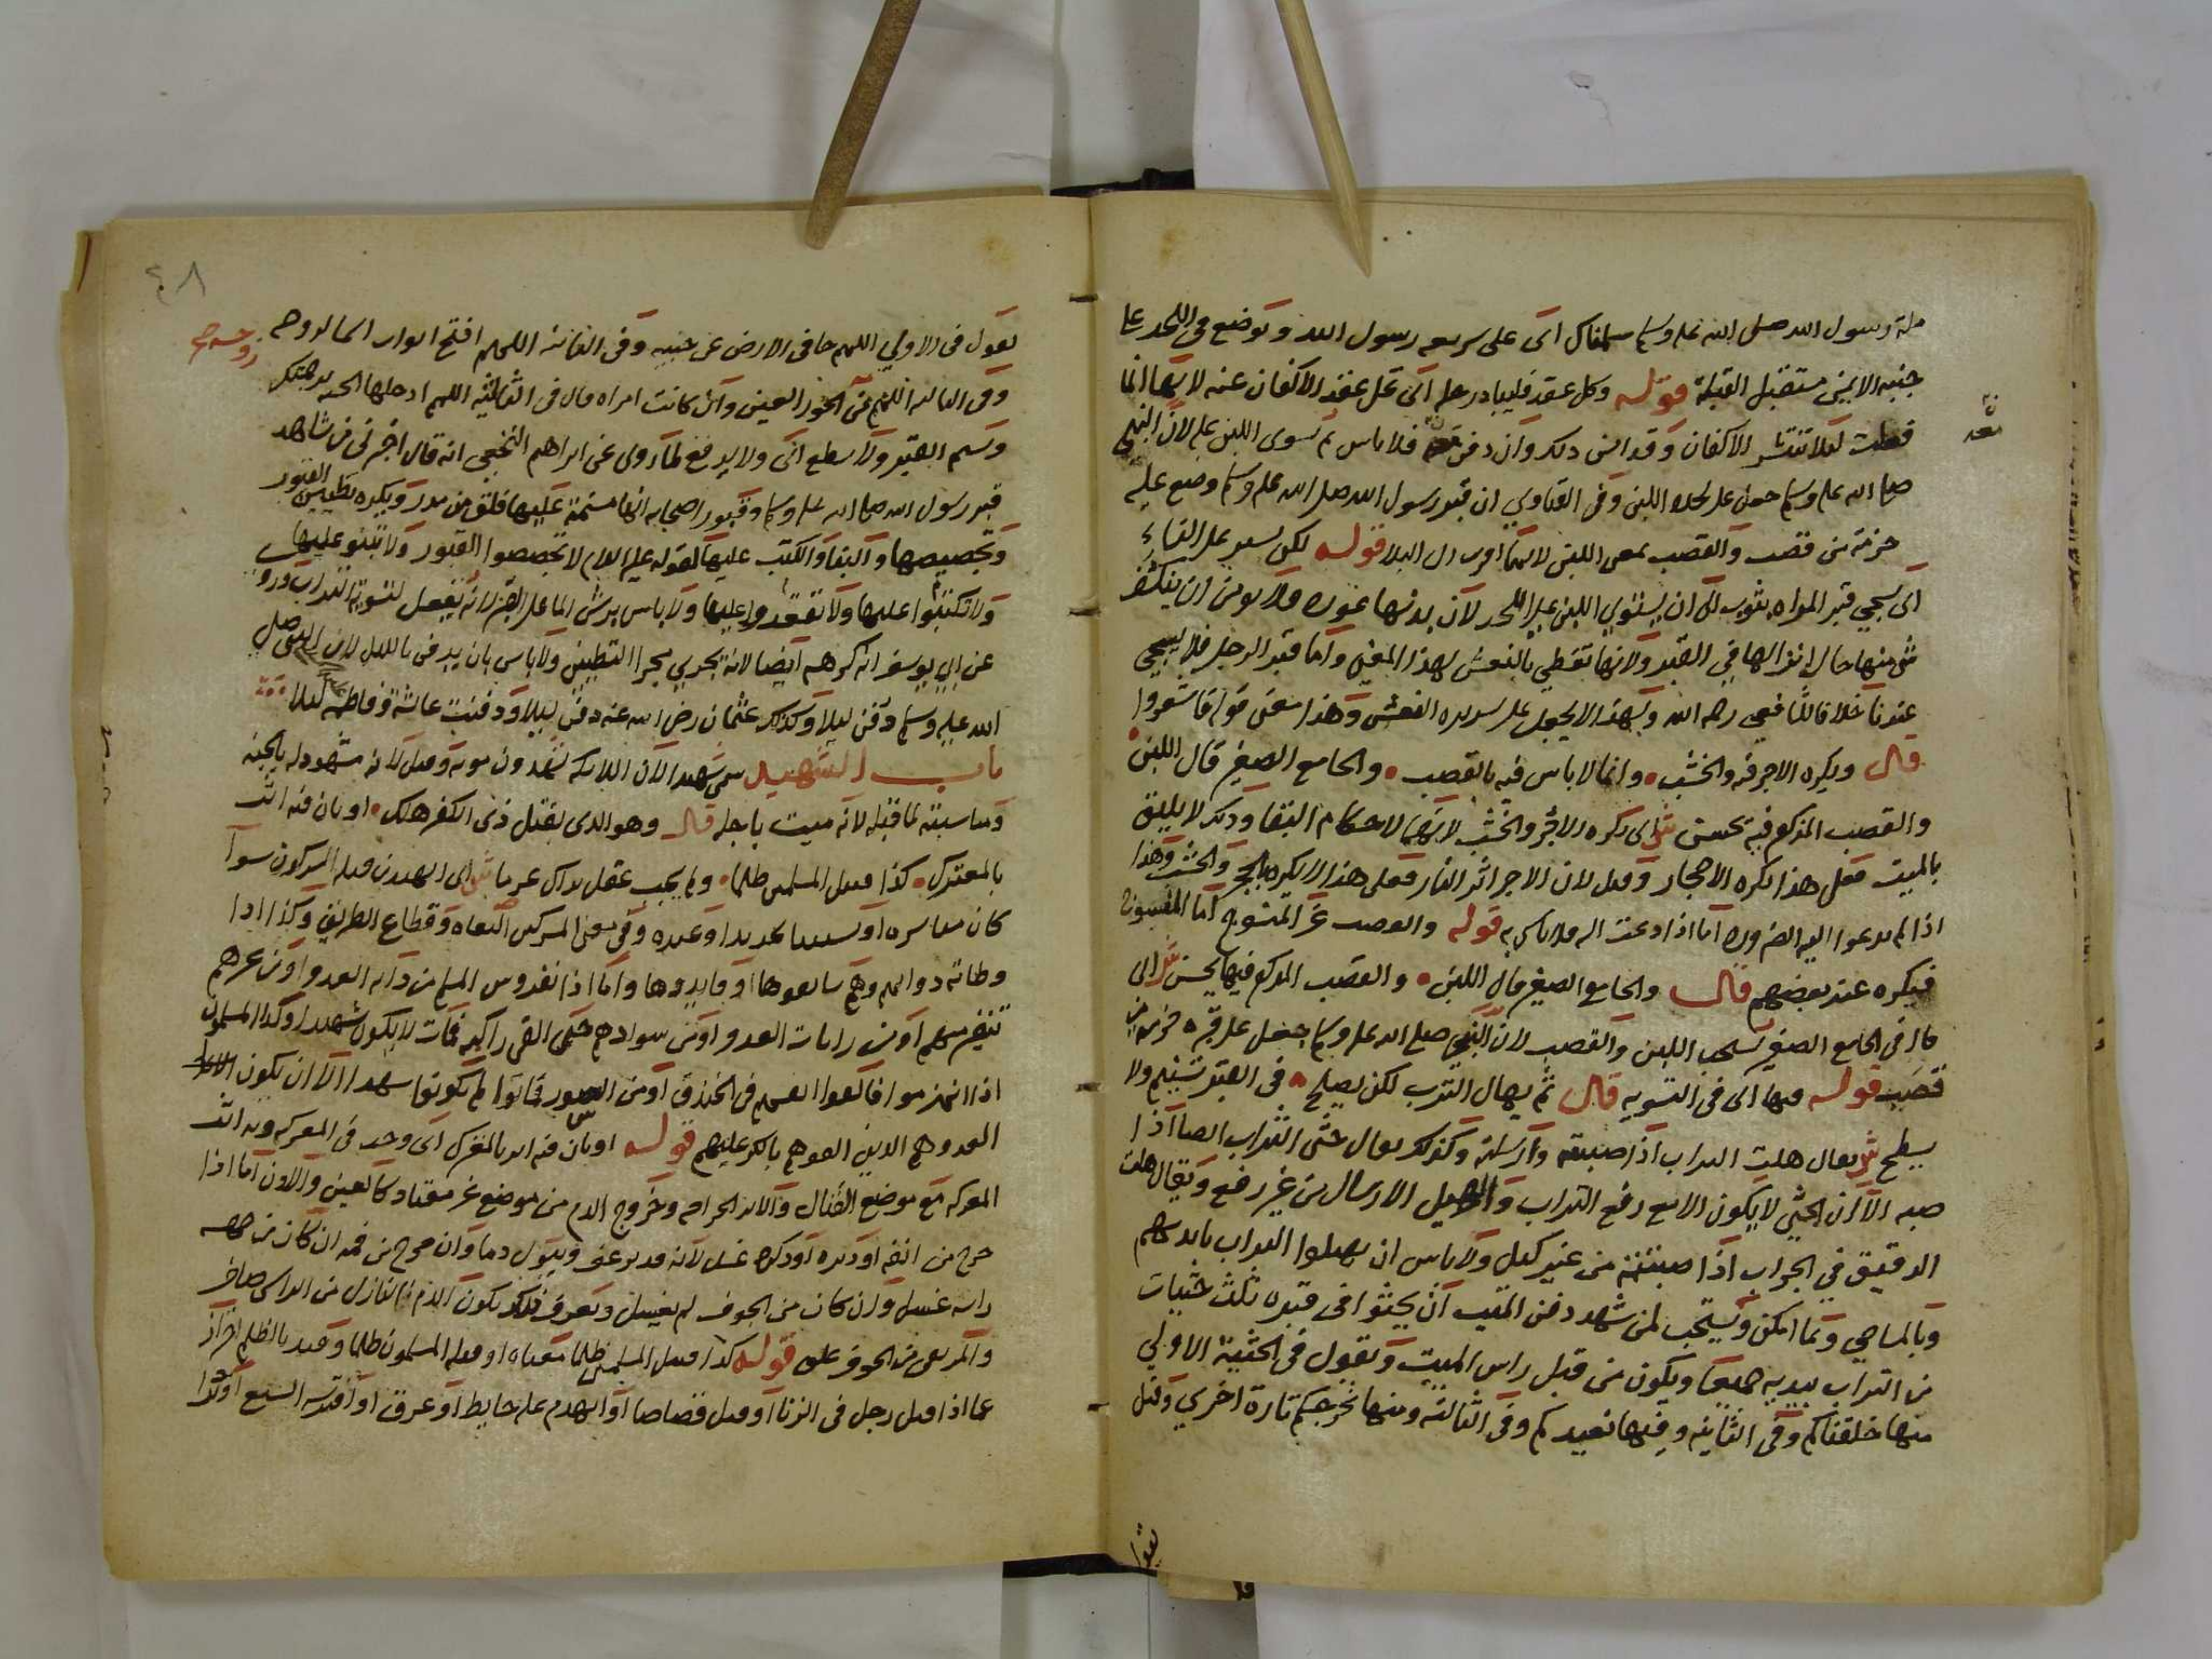 ملة رسول الله صلى الله عليه وسلم سلمناك اى على شريعة رسول الله وتوضع في اللحد على
جنبه الايمن مستقبل القبلة قوله وكل عقد فليبادر حله اى تحل عقد الاكفان عنه لانها انما
فعلت لئلا تنتشر الاكفان وقد امن ذلك وان دفن معه فلا باس ثم يسوى اللبن عليه لان النبي
صلى الله عليه وسلم جعل على لحده اللبن وفى الفتاوي ان قبر رسول الله صلى الله عليه وسلم وضع عليه
حزمة من قصب والقصب بمعنى اللبن لانهما اقرب الى البلا قوله لكن يسجى على النساء
اى يسجي قبر المراه بثوب الى ان يستوي اللبن على اللحد لان بدنها عورة فلا يومن ان ينكشف
شى منها حال انزالها في القبر ولانها تغطي بالنعش لهذا المعنى واما قبر الرجل فلا يسجى
عندنا خلافا للشافعي رحمه الله ولهذا لا يجعل على سريره النعش وهذا معنى قوله فاستعروا
قال ويكره الاجر فيه والخشب وانما لا باس فيه بالقصب والجامع الصغير قال اللبن
والقصب المذكور فيه يحسن ش اى يكره الاجر والخشب لانهما لاحكام البقا وذلك لا يليق
بالميت فعلى هذا تكره الاحجار وقيل لان الاجر اثر النار فعلى هذا لا يكره الحجر والخشب وهذا
اذا لم يدعوا اليه الضرورة اما اذا دعت اليه فلا باس به قوله والقصب غير المنسوج اما المنسوج
فيكره عند بعضهم قال والجامع الصغير قال اللبن والقصب المذكور فيها يحسن ش اى
قال في الجامع الصغير يستحب اللبن والقصب لان النبي صلى الله عليه وسلم جعل على قبره حزمة من
قصب قوله فيها اى في التسوية قال ثم يهال الترب لكن يصلح في القبر تسنيم ولا
يسطح ش يقال هلت التراب اذا صببته وارسلته وكذلك يقال حثى التراب ايضا اذا
صبه الا ان الحثي لا يكون الا مع رفع التراب والهيل الارسال من غير رفع ويقال هلت
الدقيق في الجراب اذا صببته من غير كيل ولا باس ان يهيلوا التراب بايديهم
وبالمساحي وبما امكن ويستحب لمن شهد دفن الميت ان يحثوا في قبره ثلث حثيات
من التراب بيديه جميعا ويكون من قبل راس الميت ويقول في الحثية الاولي
منها خلقناكم وفى الثانية وفيها نعيدكم وفى الثالثة ومنها نخرجكم تارة اخري وقيل
٤٨
يقول في الاولي اللهم جافى الارض عن جنبيه وفى الثانية اللهم افتح ابواب السما لروحه
وفى الثالثة اللهم زوجه من الحور العين وان كانت امراه قال في الثالثة اللهم ادخلها الجنة برحمتك
ويسنم القبر ولا يسطح اى ولا يربع لما روى عن ابراهيم النخعي انه قال اخبرني من شاهد
قبر رسول الله صلى الله عليه وسلم وقبور اصحابه انها مسنمة عليها فلق من مدر ويكره تطيين القبور
وتجصيصها والبنا والكتب عليها لقوله عليه السلام لا تجصصوا القبور ولا تبنوا عليها
ولا تكتبوا عليها ولا تقعدوا عليها ولا باس برش الما على القبر لانه يفعل لتسوية التراب وروى
عن ابى يوسف انه كرهه ايضا لانه يجري مجرا التطيين ولا باس بان يدفن بالليل لان النبي صلى
الله عليه وسلم دفن ليلا وكذلك عثمان رضى الله عنه دفن ليلا ودفنت عائشة وفاطمة ليلا
باب الشهيد سمى شهيدا لان الملايكة يشهدون موته وقيل لانه مشهود له بالجنة
ومناسبته لما قبله لانه ميت باجله قال وهو الذى بقتل ذى الكفر هلك او بان فيه اثر
بالمعترك كذا قتيل المسلمين ظلما ولم يجب عقل بذاك غرما ش اى الشهيد من قتله المشركون سوآ
كان مباشرة او تسببا بحديد او غيره وفى معنى المشركين البغاه وقطاع الطريق وكذا اذا
وطاته دوابهم وهم سايقوها او قايدوها واما اذا نفر فرس المسلم من دابه العدو او من غير
تنفير منهم او من رايات العدو او من سوادهم حتى القى راكبه فمات لا يكون شهيدا وكذا المسلمون
اذا انهزموا فالقوا انفسهم في الخندق او من السور فماتوا لم يكونوا شهدا الا ان يكون
العدو هم الذين القوهم بالكر عليهم قوله او بان فيه اثر بالمعترك اى وجد في المعركه وبه اثر
المعركه مع موضع القتال والاثر الجراحه وخروج الدم من موضع غير معتاد كالعين والاذن اما اذا
خرج من انفه او دبره او ذكره غسل لانه قد يرعف ويبول دما وان خرج من فمه ان كان من جهة
راسه غسل وان كان من الجوف لم يغسل ويعرف ذلك بكون الدم النازل من الراس صافى
والمرتقى من الجوف علق قوله كذا قتيل المسلمين ظلما معناه او قتله المسلمون ظلما وقيد بالظلم احترازا
عما اذا قتل رجل في الزنا او قتل قصاصا او انهدم عليه حايط او غرق او افترسه السبع او تردا